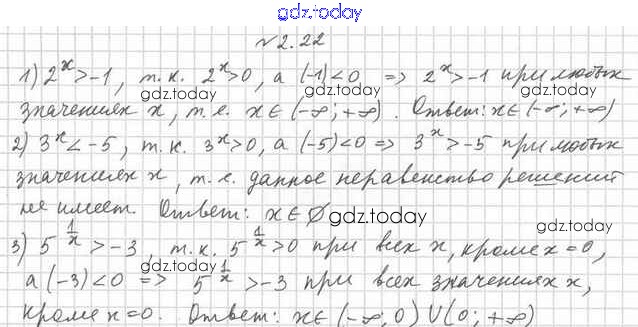 gdz.today
№2.22
1) 2^x > -1, т.к. 2^x > 0, а (-1) < 0 => 2^x > -1 при любых
gdz.today gdz.today
значениях x, т.е. x ∈ (-∞; +∞). Ответ: x ∈ (-∞; +∞)
2) 3^x < -5, т.к. 3^x > 0, а (-5) < 0 => 3^x > -5 при любых
gdz.today gdz.today
значениях x, т.е. данное неравенство решений
не имеет. Ответ: x ∈ ∅ gdz.today
3) 5^(1/x) > -3, т.к. 5^(1/x) > 0 при всех x, кроме x = 0,
gdz.today gdz.today
а (-3) < 0 => 5^(1/x) > -3 при всех значениях x,
кроме x = 0. Ответ: x ∈ (-∞; 0) ∪ (0; +∞)
gdz.today